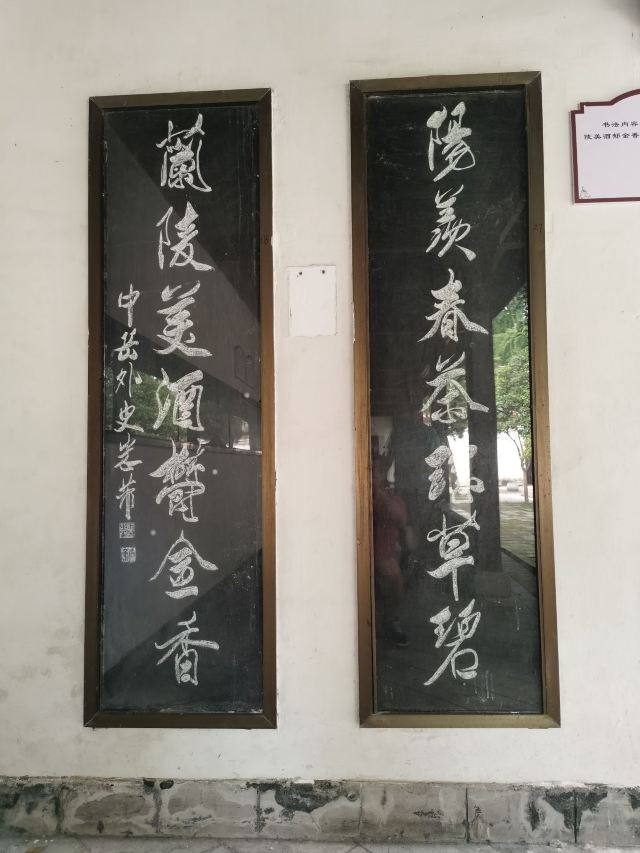 陽羨春茶瑶草碧
蘭陵美酒鬱金香
中岳外史米芾
书法内容
陵美酒郁金香